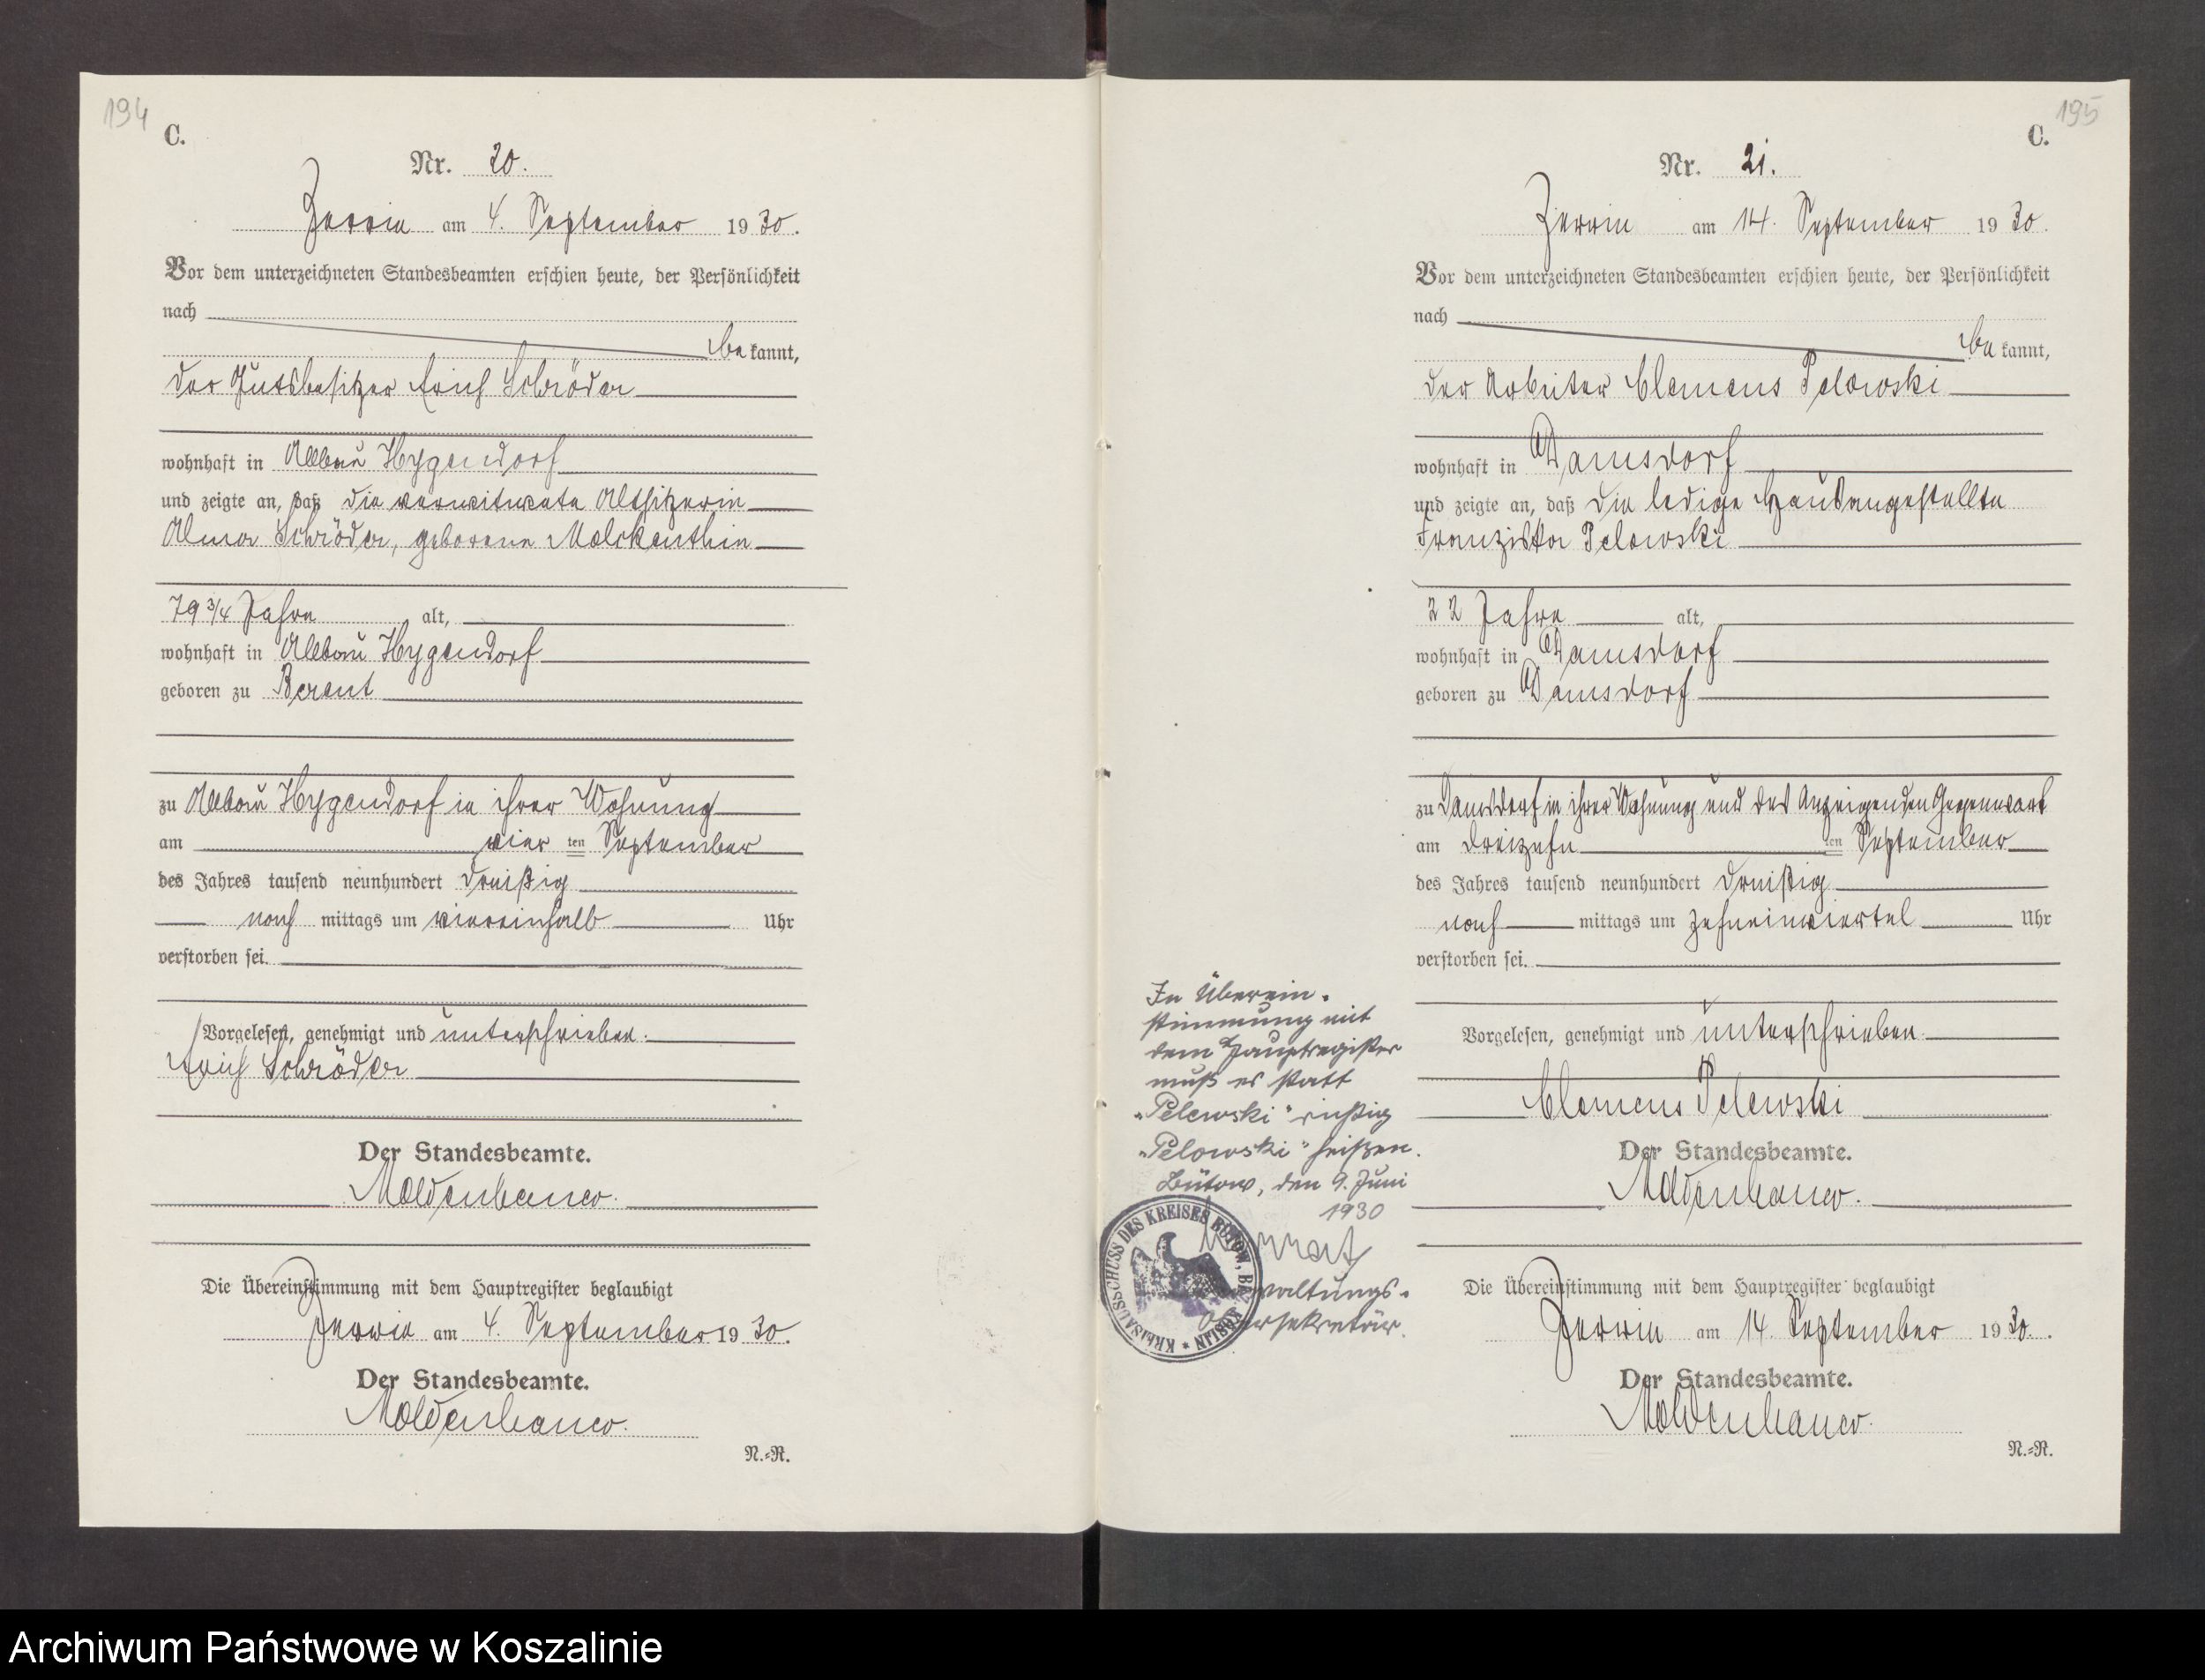 194
C.
Nr. 20.
Zerrin am 4. September 1930.
Vor dem unterzeichneten Standesbeamten erschien heute, der Persönlichkeit
nach
bekannt,
der Gutsbesitzer Erich Schröder
wohnhaft in Abbau Hygendorf
und zeigte an, daß die verwitwete Altsitzerin
Alma Schröder, geborene
79 3/4 Jahre alt,
wohnhaft in Abbau Hygendorf
geboren zu Berent
zu Abbau Hygendorf in ihrer Wohnung
am vierten September
des Jahres tausend neunhundert dreißig
nachmittags um viereinhalb Uhr
verstorben sei.
Vorgelesen, genehmigt und unterschrieben.
Erich Schröder
Der Standesbeamte.
Moldenhauer.
Die Übereinstimmung mit dem Hauptregister beglaubigt
Zerrin am 4. September 1930.
Der Standesbeamte.
Moldenhauer.
N.=R.
195
C.
Nr. 21.
Zerrin am 14. September 1930.
Vor dem unterzeichneten Standesbeamten erschien heute, der Persönlichkeit
nach
bekannt,
der Arbeiter Clemens Pelowski
wohnhaft in Damsdorf
und zeigte an, daß die ledige Hausangestellte
Franziska Pelowski
22 Jahre alt,
wohnhaft in Damsdorf
geboren zu Damsdorf
zu Damsdorf in ihrer Wohnung und des Anzeigenden Gegenwart
am dreizehnten September
des Jahres tausend neunhundert dreißig
nachmittags um zehneinviertel Uhr
verstorben sei.
Vorgelesen, genehmigt und unterschrieben.
Clemens Pelewski
Der Standesbeamte.
Moldenhauer.
Die Übereinstimmung mit dem Hauptregister beglaubigt
Zerrin am 14. September 1930.
Der Standesbeamte.
Moldenhauer.
N.=R.
In Überein-
stimmung mit
dem Hauptregister
muß es statt
"Pelewski" richtig
"Pelowski" heißen.
Bütow, den 9. Juni
1930
KREISAUSSCHUSS DES KREISES BÜTOW, BEZ. KÖSLIN
waltungs-
ersekretär.
Archiwum Państwowe w Koszalinie